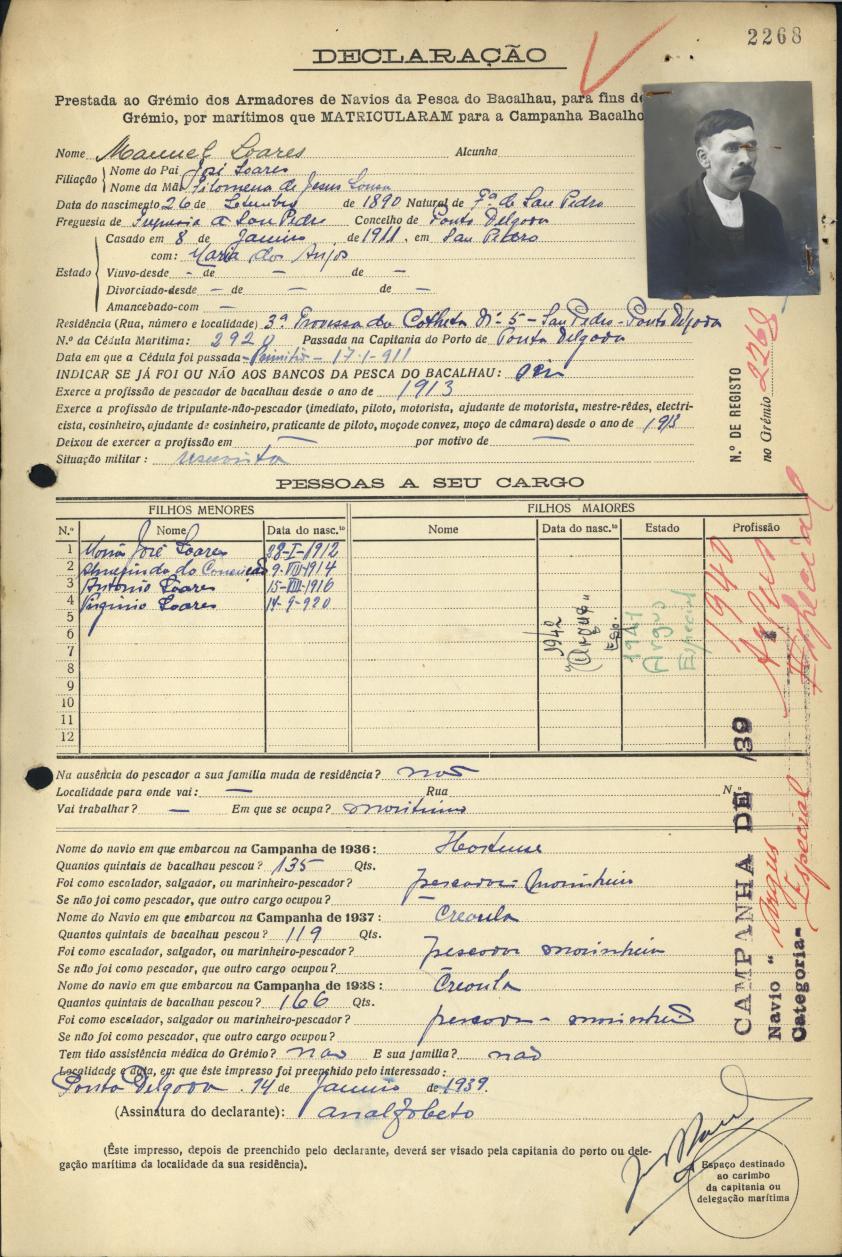 2268
DECLARAÇÃO
Prestada ao Grémio dos Armadores de Navios da Pesca do Bacalhau, para fins de
Grémio, por marítimos que MATRICULARAM para a Campanha Bacalho
Nome Manuel Soares Alcunha
Filiação Nome do Pai José Soares
Nome da Mãe Filomena de Jesus Sousa
Data do nascimento 26 de Setembro de 1890 Natural de Fª de San Pedro
Freguesia de Freguesia de San Pedro Concelho de Ponta Delgada
Estado Casado em 8 de Janeiro de 1911. em San Pedro
com: Maria dos Anjos
Viuvo-desde - de — de —
Divorciado-desde — de — de —
Amancebado-com —
Residência (Rua, número e localidade) 3ª Travessa da Calheta Nº 5 - San Pedro - Ponta Delgada
N.º da Cédula Marítima: 2920 Passada na Capitania do Porto de Ponta Delgada
Data em que a Cédula foi passada - - 17-1-911
INDICAR SE JÁ FOI OU NÃO AOS BANCOS DA PESCA DO BACALHAU: sim
Exerce a profissão de pescador de bacalhau desde o ano de 1913
Exerce a profissão de tripulante-não-pescador (imediato, piloto, motorista, ajudante de motorista, mestre-rêdes, electri-
cista, cosinheiro, ajudante de cosinheiro, praticante de piloto, moço de convez, moço de câmara) desde o ano de 1913
Deixou de exercer a profissão em — por motivo de —
Situação militar: reservista
N.º DE REGISTO
no Grémio 2268
PESSOAS A SEU CARGO
FILHOS MENORES FILHOS MAIORES
N.º Nome Data do nasc.to Nome Data do nasc.to Estado Profissão
1 Maria José Soares 28-I-1912
2 da Conceição 9-VII-1914
3 António Soares 15-VIII-1916
4 Virginio Soares 14-9-920
5
6
7
8
9
10
11
12
1942
"Argus"
Esp.
1941
Argus
Especial
1940
Argus
Especial
Na ausência do pescador a sua família muda de residência? não
Localidade para onde vai: — Rua N.º
Vai trabalhar? — Em que se ocupa? maritimo
Nome do navio em que embarcou na Campanha de 1936: Hortense
Quantos quintais de bacalhau pescou? 135 Qts.
Foi como escalador, salgador, ou marinheiro-pescador? pescador - marinheiro
Se não foi como pescador, que outro cargo ocupou? —
Nome do Navio em que embarcou na Campanha de 1937: Creoula
Quantos quintais de bacalhau pescou? 119 Qts.
Foi como escalador, salgador, ou marinheiro-pescador? pescador marinheiro
Se não foi como pescador, que outro cargo ocupou? —
Nome do navio em que embarcou na Campanha de 1938: Creoula
Quantos quintais de bacalhau pescou? 166 Qts.
Foi como escalador, salgador ou marinheiro-pescador? pescador - marinheiro
Se não foi como pescador, que outro cargo ocupou?
Tem tido assistência médica do Grémio? não E sua família? não
Localidade e data, em que êste impresso foi preenchido pelo interessado:
Ponta Delgada. 14 de Janeiro de 1939.
(Assinatura do declarante): analfabeto
CAMPANHA DE 39
Navio "Argus"
Categoria- Especial
(Êste impresso, depois de preenchido pelo declarante, deverá ser visado pela capitania do porto ou dele-
gação marítima da localidade da sua residência).
Espaço destinado
ao carimbo
da capitania ou
delegação marítima